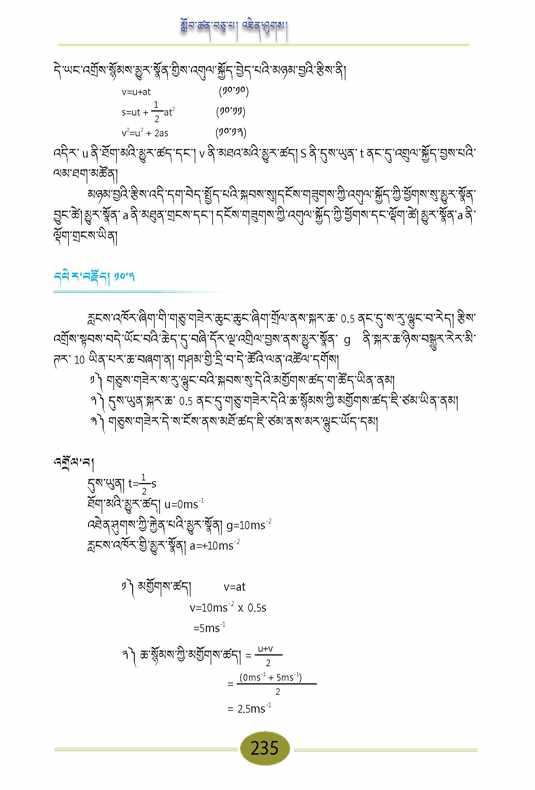 སློབ་ཚན་བཅུ་པ། འཐེན་ཤུགས།
དེ་ཡང་འགྲོས་སྙོམས་མྱུར་སྣོན་གྱིས་འགུལ་སྐྱོད་བྱེད་པའི་མཉམ་བྱའི་རྩིས་ནི།
v=u+at (༡༠་༡༠)
s=ut + 1/2 at² (༡༠་༡༡)
v²=u² + 2as (༡༠་༡༢)
འདིར་ u ནི་ཐོག་མའི་མྱུར་ཚད་དང་། v ནི་མཐའ་མའི་མྱུར་ཚད། S ནི་དུས་ཡུན་ t ནང་དུ་འགུལ་སྐྱོད་བྱས་པའི་
ལམ་ཐག་མཚོན།
མཉམ་བྱའི་རྩིས་འདི་དག་བེད་སྤྱོད་པའི་སྐབས་སུ།དངོས་གཟུགས་ཀྱི་འགུལ་སྐྱོད་ཀྱི་ཕྱོགས་སུ་མྱུར་སྣོན་
བྱུང་ཚེ། མྱུར་སྣོན་ a ནི་མཐུན་གྲངས་དང་། དངོས་གཟུགས་ཀྱི་འགུལ་སྐྱོད་ཀྱི་ཕྱོགས་དང་ལྡོག་ཚེ། མྱུར་སྣོན་a ནི་
ལྡོག་གྲངས་ཡིན།
དཔེར་བརྗོད། ༡༠་༥
རླངས་འཁོར་ཞིག་གི་གཅུ་གཟེར་ཆུང་ཆུང་ཞིག་གྲོལ་ནས་སྐར་ཆ་ 0.5 ནང་དུ་ས་རུ་ལྷུང་བ་རེད། རྩིས་
འགྲོས་སྟབས་བདེ་ཡོང་བའི་ཆེད་དུ་བཞི་དོར་ལྔ་འགྲིལ་བྱས་ནས་མྱུར་སྣོན་ g ནི་སྐར་ཆ་ཉིས་བསྒྱུར་རེར་མི་
ཊར་ 10 ཡིན་པར་ཆ་བཞག་ན། གཤམ་གྱི་དྲི་བ་དེ་ཚོའི་ལན་འཚོལ་དགོས།
༡༽ གཅུས་གཟེར་ས་རུ་ལྷུང་བའི་སྐབས་སུ་དེའི་མགྱོགས་ཚད་ག་ཚོད་ཡིན་ནམ།
༢༽ དུས་ཡུན་སྐར་ཆ་ 0.5 ནང་དུ་གཅུ་གཟེར་དེའི་ཆ་སྙོམས་ཀྱི་མགྱོགས་ཚད་ཇི་ཙམ་ཡིན་ནམ།
༣༽ གཅུས་གཟེར་དེ་ས་ངོས་ནས་མཐོ་ཚད་ཇི་ཙམ་ནས་མར་ལྷུང་ཡོད་དམ།
འགྲོལ་བ།
དུས་ཡུན། t=1/2 s
ཐོག་མའི་མྱུར་ཚད། u=0ms⁻¹
འཐེན་ཤུགས་ཀྱི་རྐྱེན་པའི་མྱུར་སྣོན། g=10ms⁻²
རླངས་འཁོར་གྱི་མྱུར་སྣོན། a=+10ms⁻²
༡༽ མགྱོགས་ཚད། v=at
v=10ms⁻² x 0.5s
=5ms⁻¹
༢༽ ཆ་སྙོམས་ཀྱི་མགྱོགས་ཚད། = u+v/2
= (0ms⁻¹ + 5ms⁻¹)/2
= 2.5ms⁻¹
235